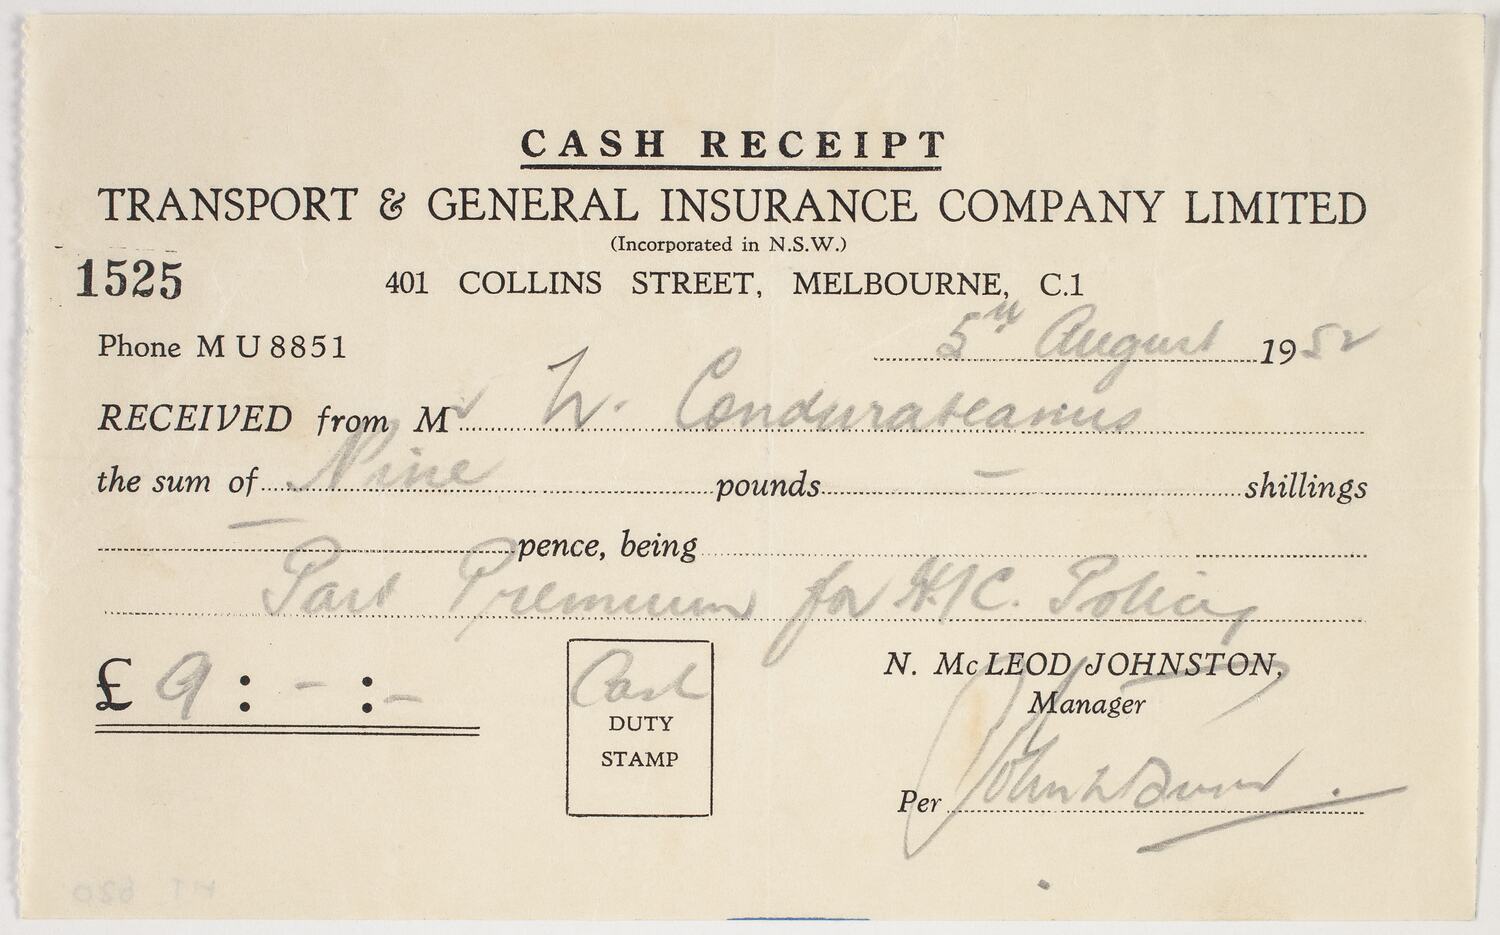 CASH RECEIPT
TRANSPORT & GENERAL INSURANCE COMPANY LIMITED
(Incorporated in N.S.W.)
1525 401 COLLINS STREET, MELBOURNE, C.1
Phone M U 8851 5th August 1952
RECEIVED from Mr
the sum of Nine pounds – shillings
– pence, being
Part Premium for H/C. Policy
£ 9 : – : –
Cash
DUTY
STAMP
N. McLEOD JOHNSTON,
Manager
Per